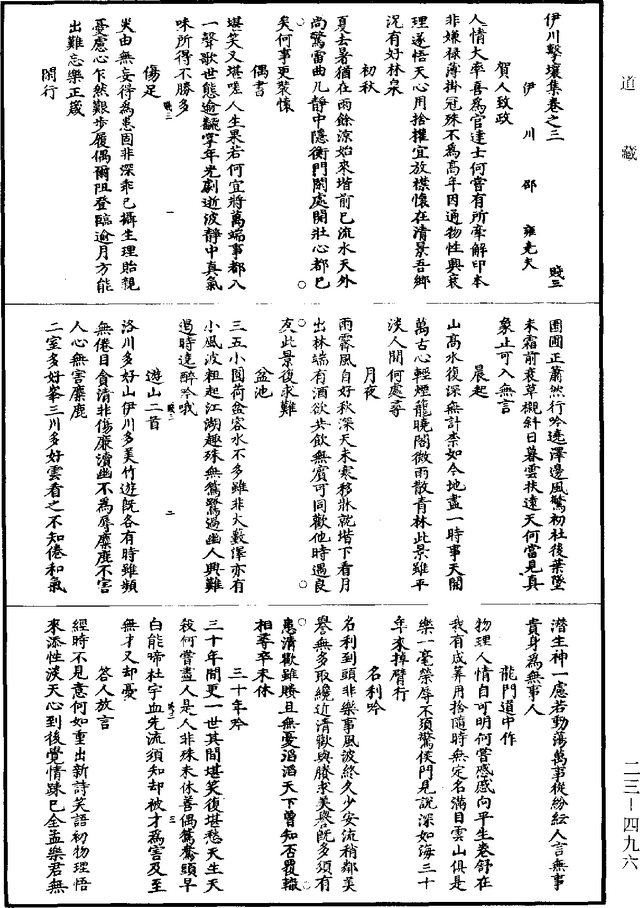 道藏
伊川擊壤集卷之三
賤三
伊川邵雍堯夫
賀人致政
人情大率喜為官達士何嘗有所牽解印本
非嫌祿薄掛冠殊不為高年因通物性興衰
理遂悟天心用捨權宜放襟懷在清景吾鄉
況有好林泉
初秋
夏去暑猶在雨餘涼始來堦前已流水天外
尚驚雷曲几靜中隱衡門閑處開壯心都已
矣何事更裝懷
偶書
堪笑又堪嗟人生果若何宜將萬端事都入
一聲歌世態逾飜掌年光劇逝波靜中真氣
味所得不勝多
傷足
災由無妄得為患固非深乖已攝生理貽親
憂慮心乍然艱步履偶爾阻登臨逾月方能
出難忘樂正箴
閑行
園圃正蕭然行吟遶澤邊風驚初社後葉墜
未霜前衰草襯斜日暮雲扶遠天何當見真
象止可入無言
晨起
山高水復深無計柰如今地盡一時事天開
萬古心輕煙籠曉閣微雨散青林此景雖平
淡人間何處尋
月夜
雨霽風自好秋深天未寒移牀就堦下看月
出林端有酒欲共飲無賓可同歡他時遇良
友此景復求難
盆池
三五小圓荷盆容水不多雖非大藪澤亦有
小風波粗起江湖趣殊無鴛鷺過幽人興難
遏時遶醉吟哦
遊山二首
洛川多好山伊川多美竹遊既各有時雖頻
無倦目貪清非傷廉瀆幽不為辱麋鹿不害
人心無害麋鹿
二室多好峯三川多好雲看之不知倦和氣
潛生神一慮若動蕩萬事從紛紜人言無事
貴身為無事人
龍門道中作
物理人情自可明何嘗慼慼向平生卷舒在
我有成筭用捨隨時無定名滿目雲山俱是
樂一毫榮辱不須驚侯門見說深如海三十
年來掉臂行
名利吟
名利到頭非樂事風波終久少安流稍鄰美
譽無多取纔近清歡與賸求美譽既多須有
患清歡雖賸且無憂滔滔天下曾知否覆轍
相尋卒未休
三十年吟
三十年間更一世其間堪笑復堪愁天生天
殺何嘗盡人是人非殊未休善偶鴛鴦頭早
白能啼杜宇血先流須知却被才為害及至
無才又却憂
答人放言
經時不見意何如重出新詩笑語初物理悟
來添性淡天心到後覺情踈已全孟樂君無
二三－四九六